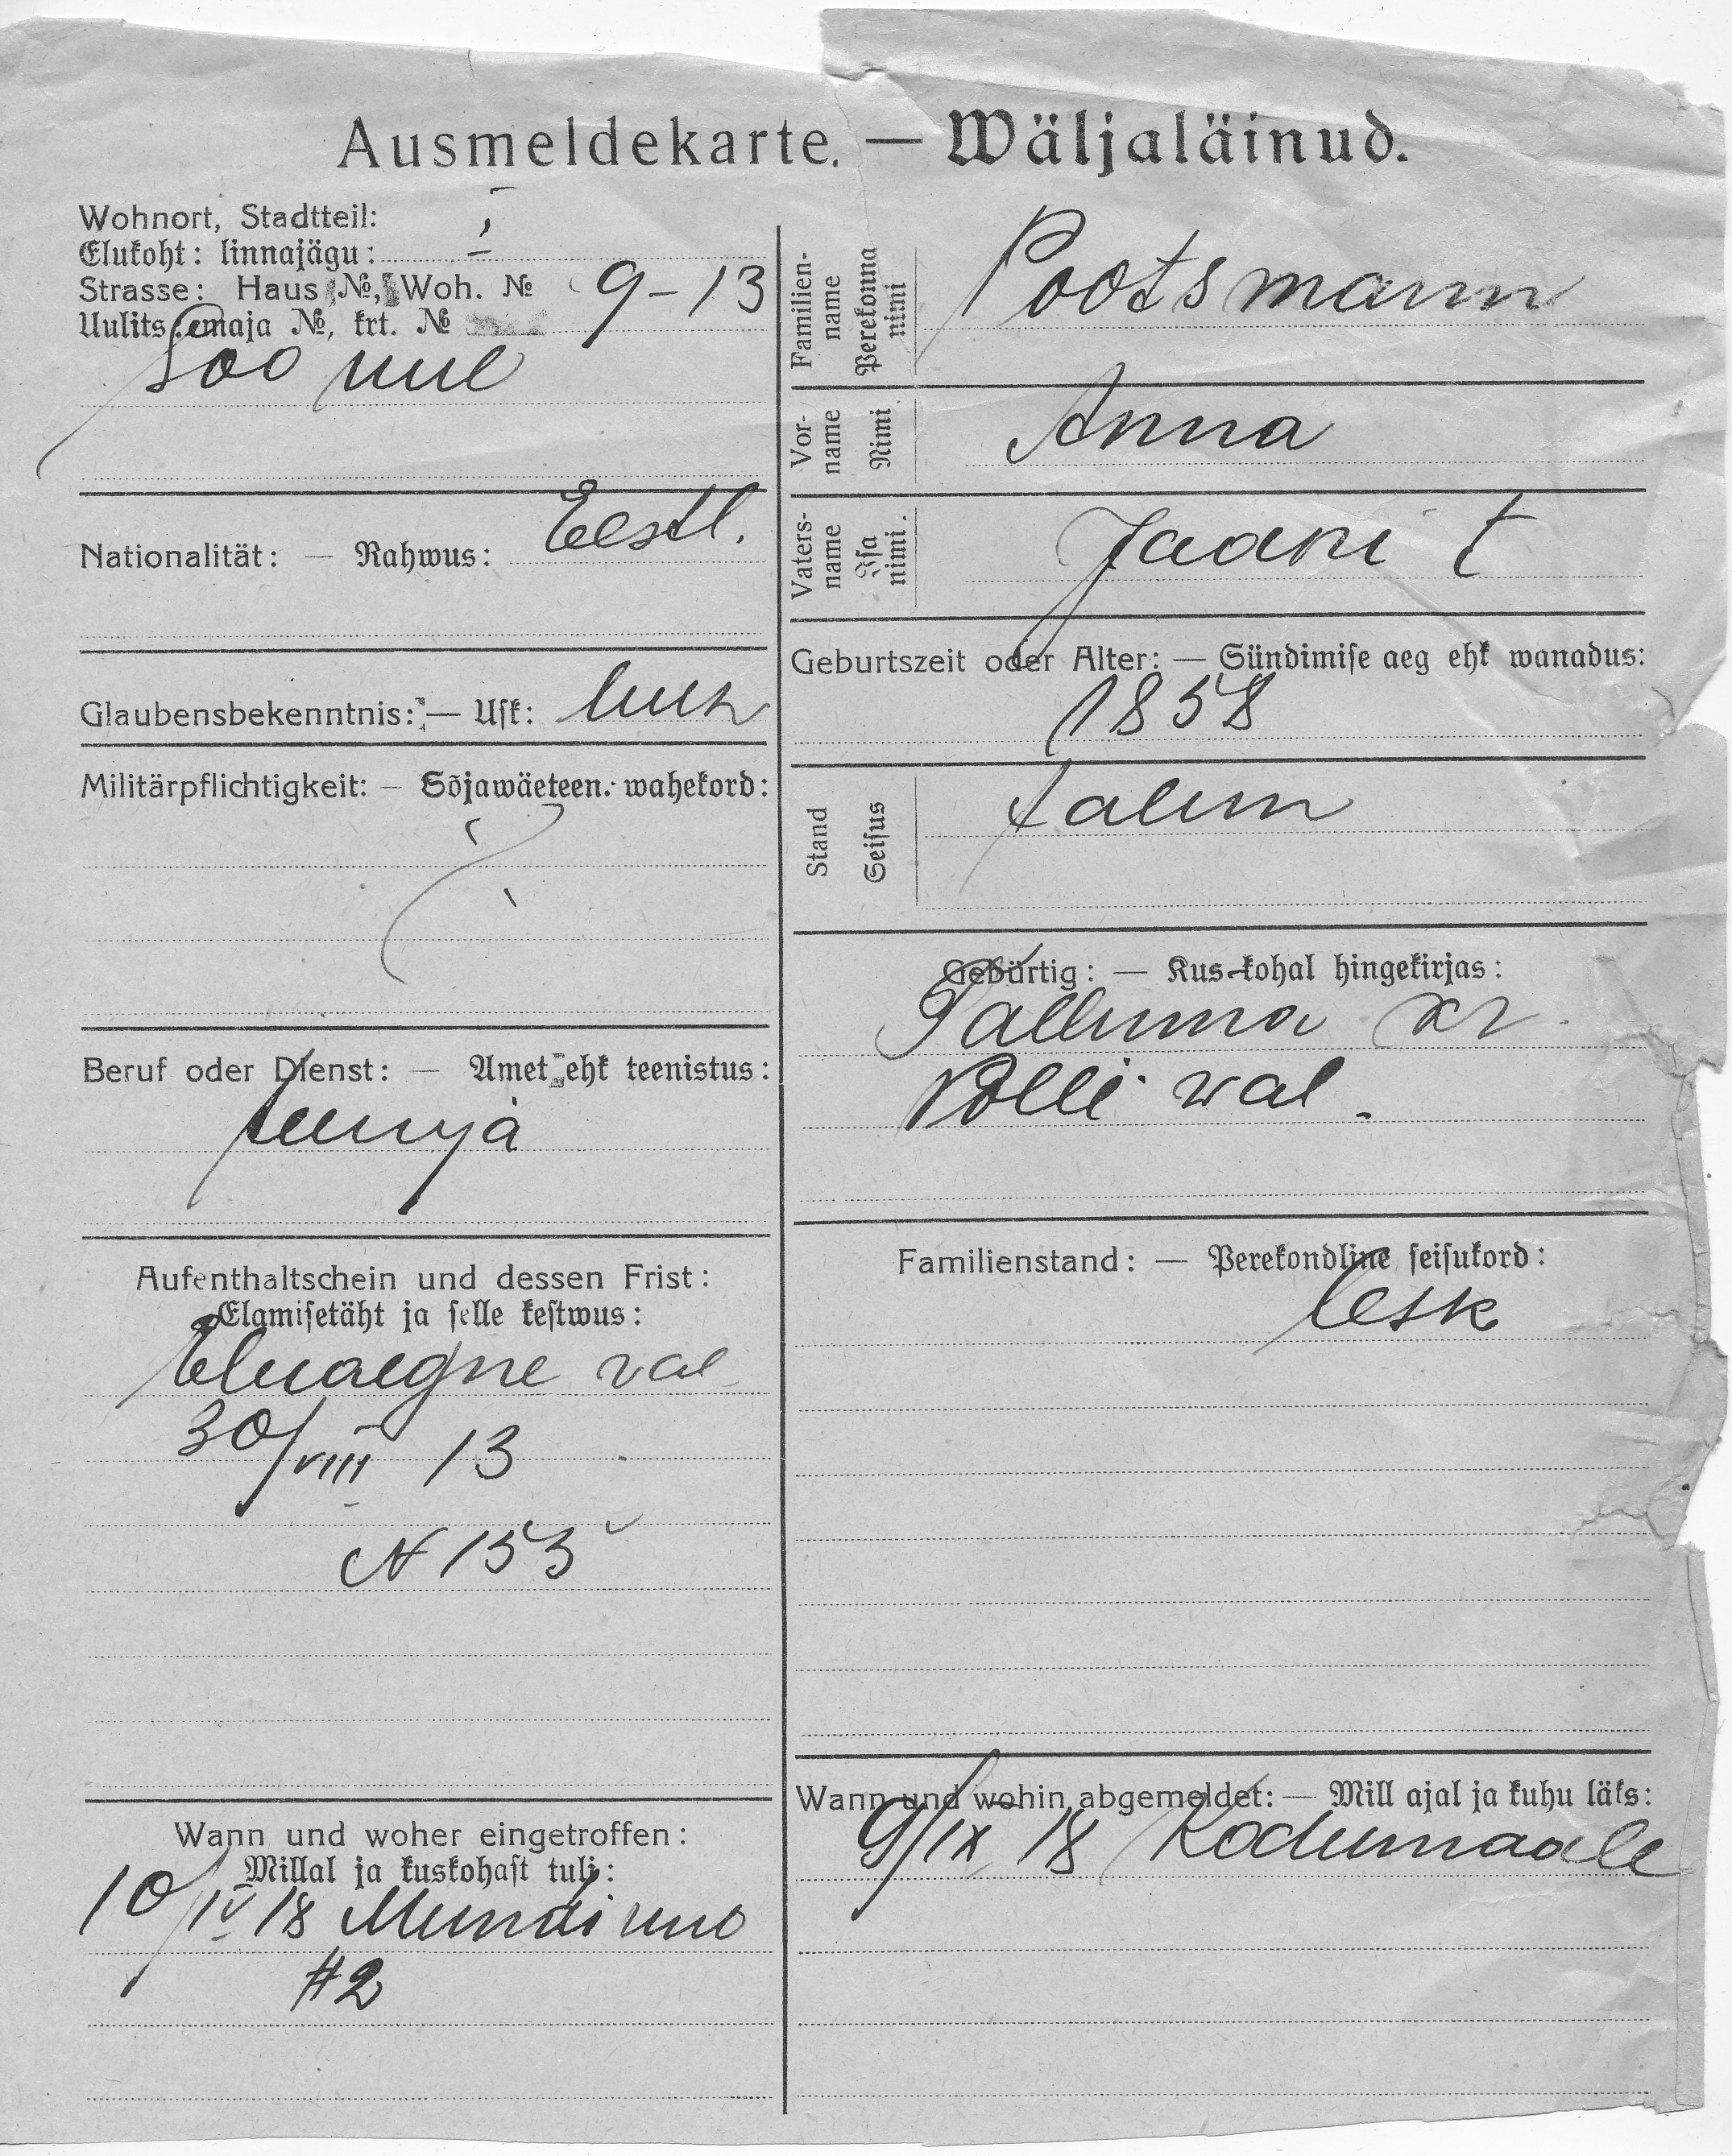 Ausmeldekarte. — Wäljaläinud.
Wohnort, Stadtteil:
Elukoht: linnajägu: I
Strasse: Haus №, Woh. №
Uulits: maja №, krt. № 9-13
Soo uul
Nationalität: — Rahwus: Eestl.
Glaubensbekenntnis: — Usk: luth
Militärpflichtigkeit: — Sõjawäeteen. wahekord:
Beruf oder Dienst: — Amet ehk teenistus:
teenija
Aufenthaltschein und dessen Frist:
Elamisetäht ja selle kestwus:
Eluaegne val
30/VIII 13
N 153
Wann und woher eingetroffen:
Millal ja kuskohast tuli:
10/IV 18 Mundi uul
#2
Familien-name Perekonna nimi Pootsmann
Vor-name Nimi Anna
Vaters-name Isa nimi. Jaani t
Geburtszeit oder Alter: — Sündimise aeg ehk wanadus:
1858
Stand Seisus talun
Gebürtig: — Kus-kohal hingekirjas:
kr.
Polli wal.
Familienstand: — Perekondline seisukord:
lesk
Wann und wohin abgemeldet: — Mill ajal ja kuhu läks:
9/IX 18 Kodumaale